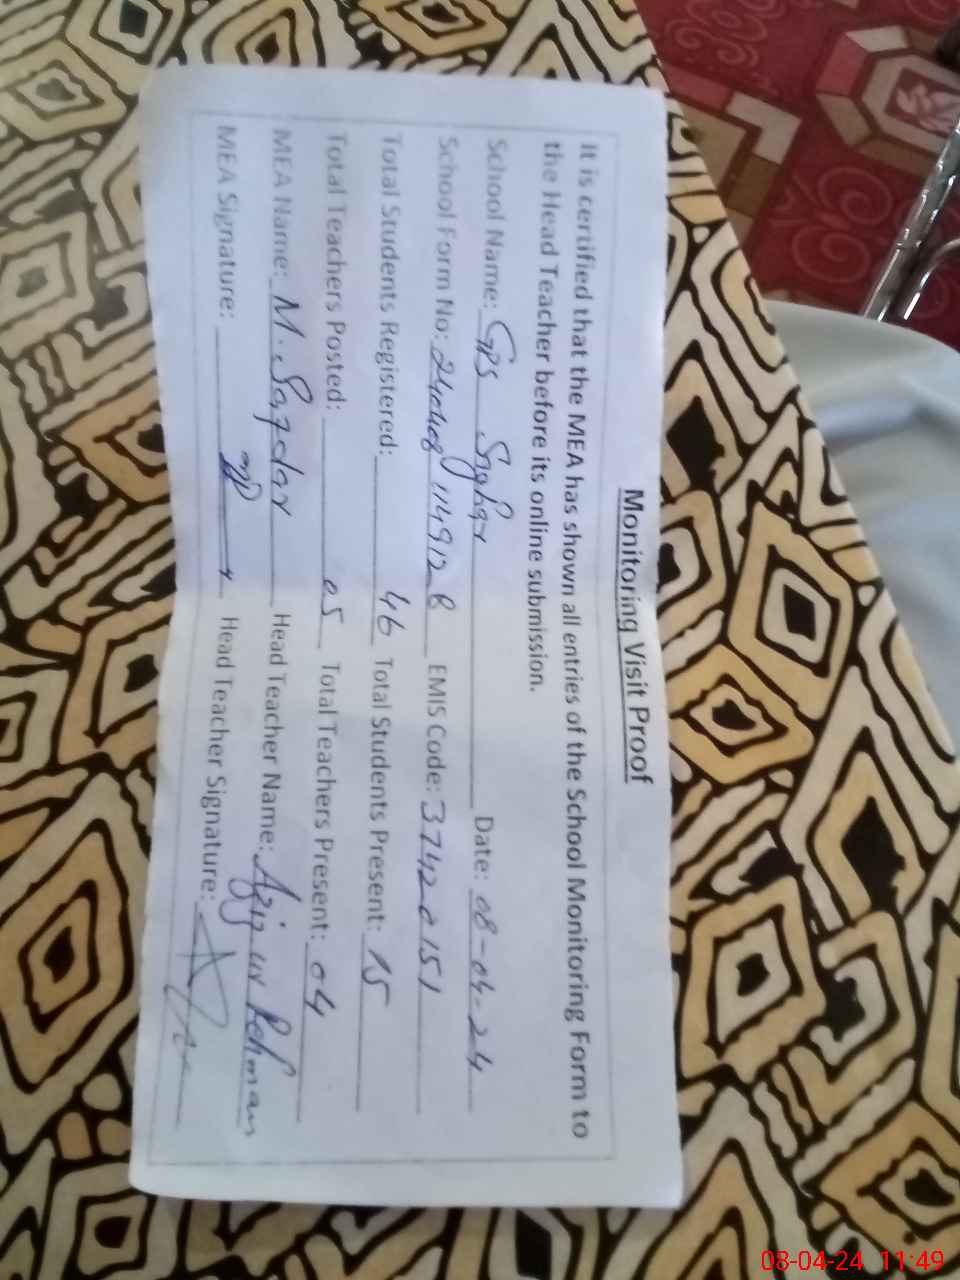 Monitoring Visit Proof
It is certified that the MEA has shown all entries of the School Monitoring Form to
the Head Teacher before its online submission.
School Name: GPS Date: 08-04-24
School Form No: EMIS Code: 37420151
Total Students Registered: 46 Total Students Present: 15
Total Teachers Posted: 05 Total Teachers Present: 04
MEA Name: M. Safdar Head Teacher Name: Aziz ur Rehman
MEA Signature: Head Teacher Signature:
08-04-24 11:49